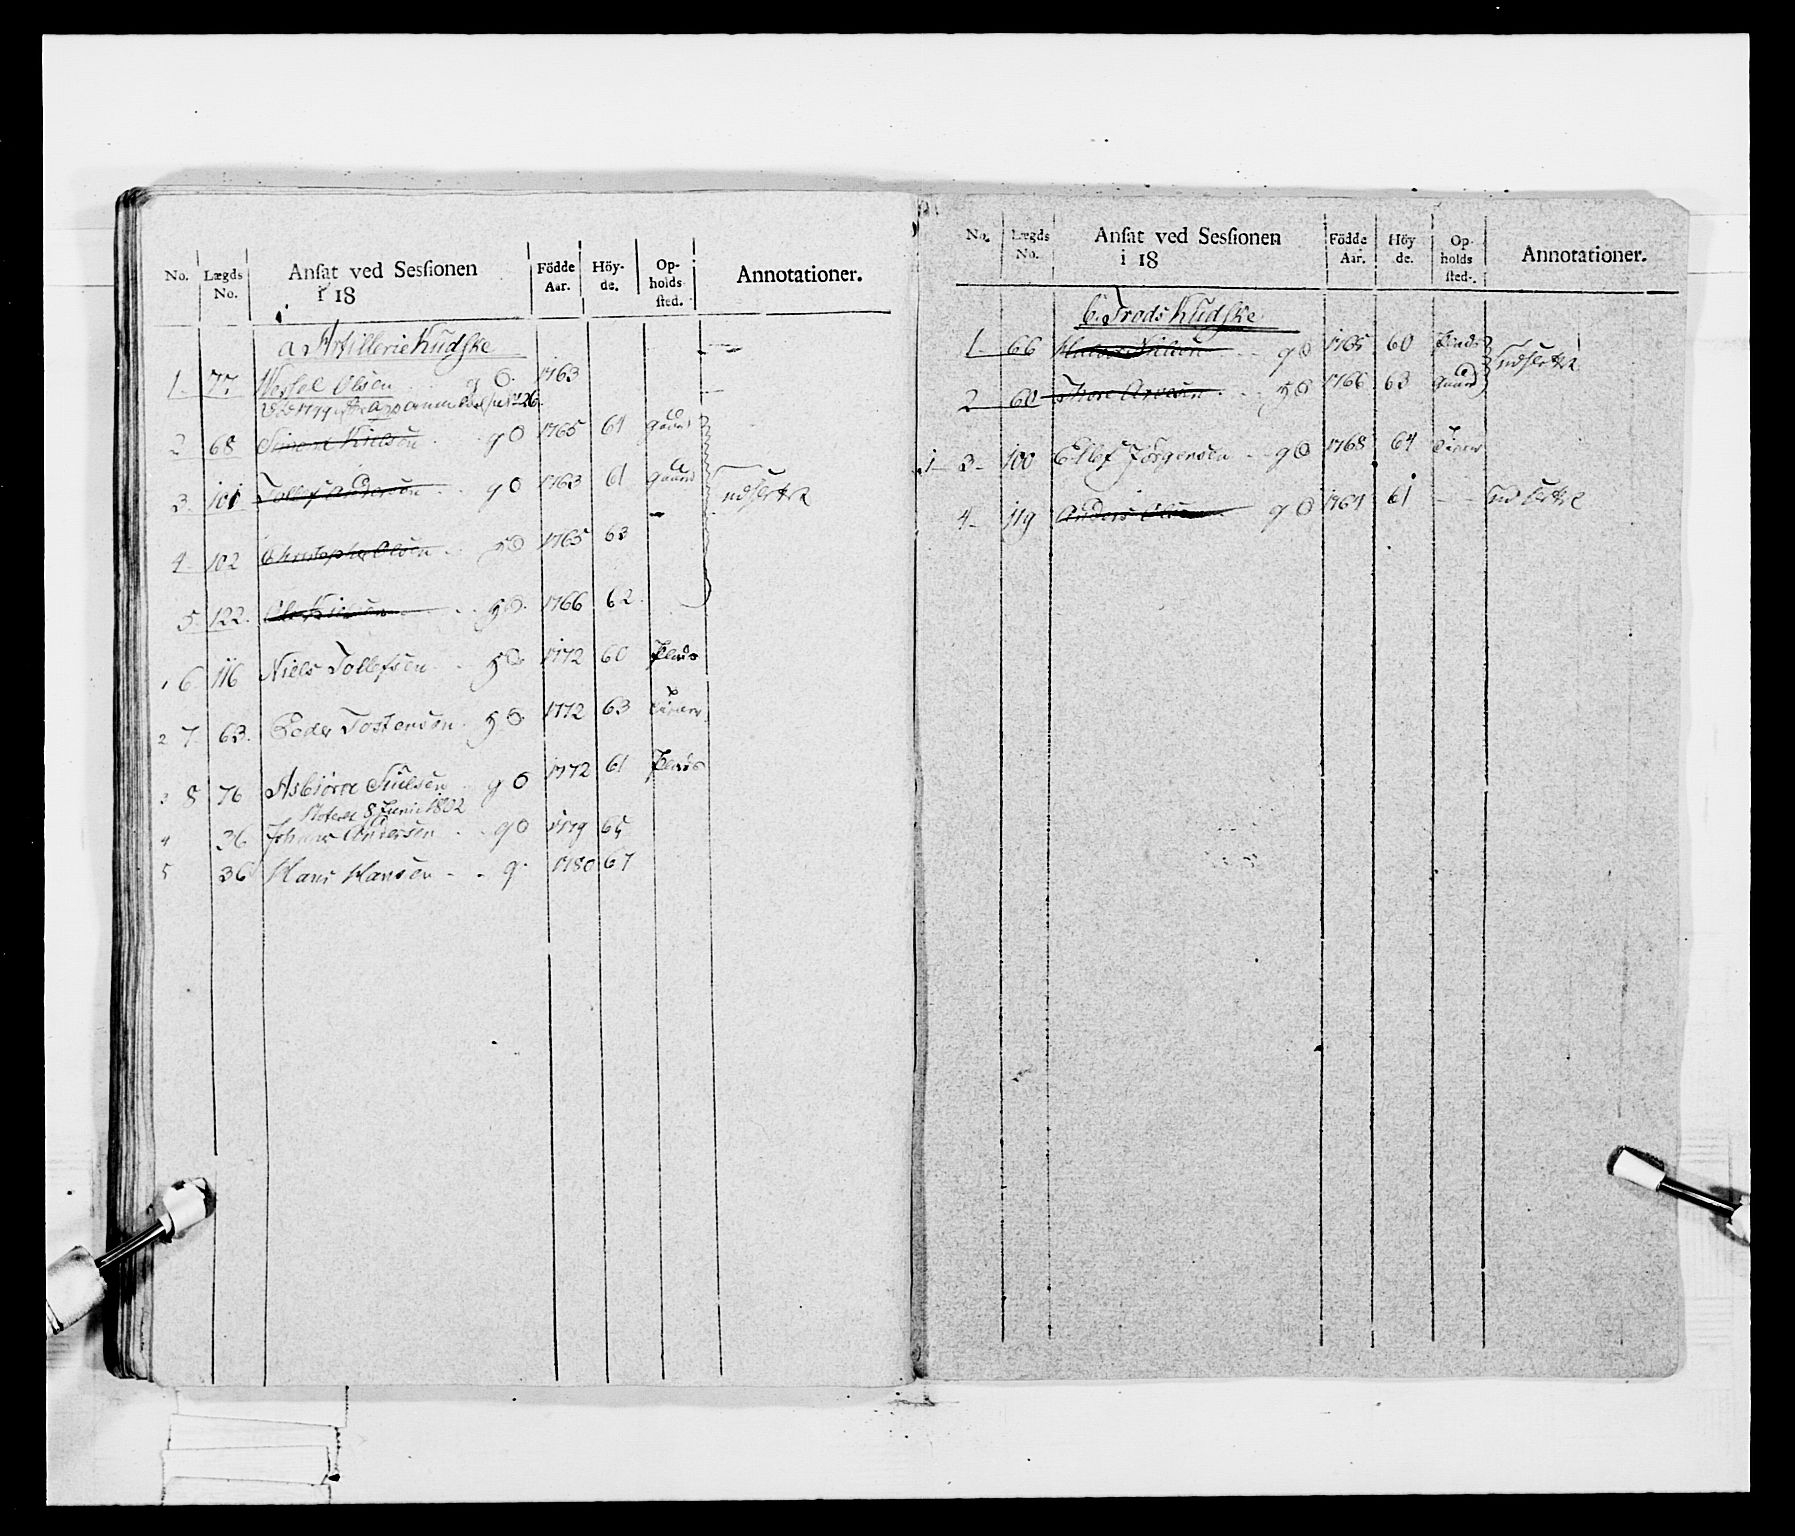 No. Lægds No. Ansat ved Sessionen i 18 Födde Aar. Höy-de. Op-holds sted. Annotationer.
a. Artillerie Kudske
1. 77 Wessel Olsen g O. 1763
2 68 Simon Nielsen g O 1765 61
3. 101 Tollef Andersen g O 1763 61 Gaard udslettet
4. 102 Christopher Olsen O 1765 63
5 122. Ole O. 1766 62.
1 6 116 Niels Tollefsen O 1772 60 Plads
2 7 63. Peder Tostensen O. 1772 63
3 8 76 Asbiörn g O 1772 61 Plads
Noteret 8 Junii 1802
4 36 Johannes Andersen g O 1779 65
5 36 Hans Hansen g. 1780 67
No. Lægds No. Ansat ved Sessionen i 18 Födde Aar. Höy de. Op-holds sted. Annotationer.
b. Trods Kudske
1. 66 Nielsen g O 1765 60 Plads udslettet
2 60 Thore O 1766 63 Gaard
1 3. 100 Ellef Jörgensen g O 1768 64
4. 119 Anders Olsen g O 1764 61 udslettet